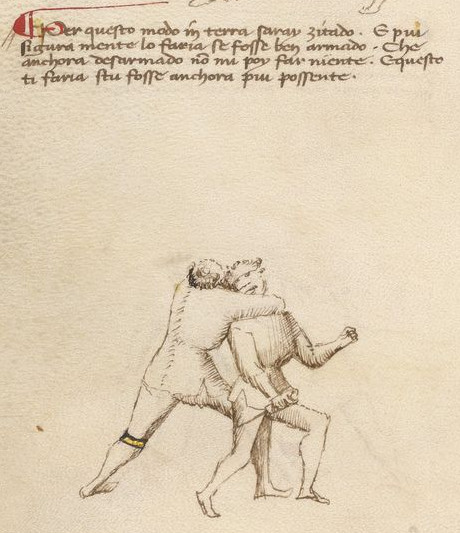 Per questo modo in terra saray zitado. E piu
sigura mente lo faria se fosse ben armado. Che
anchora desarmado nō mi poy far niente. E questo
ti faria stu fosse anchora piu possente.